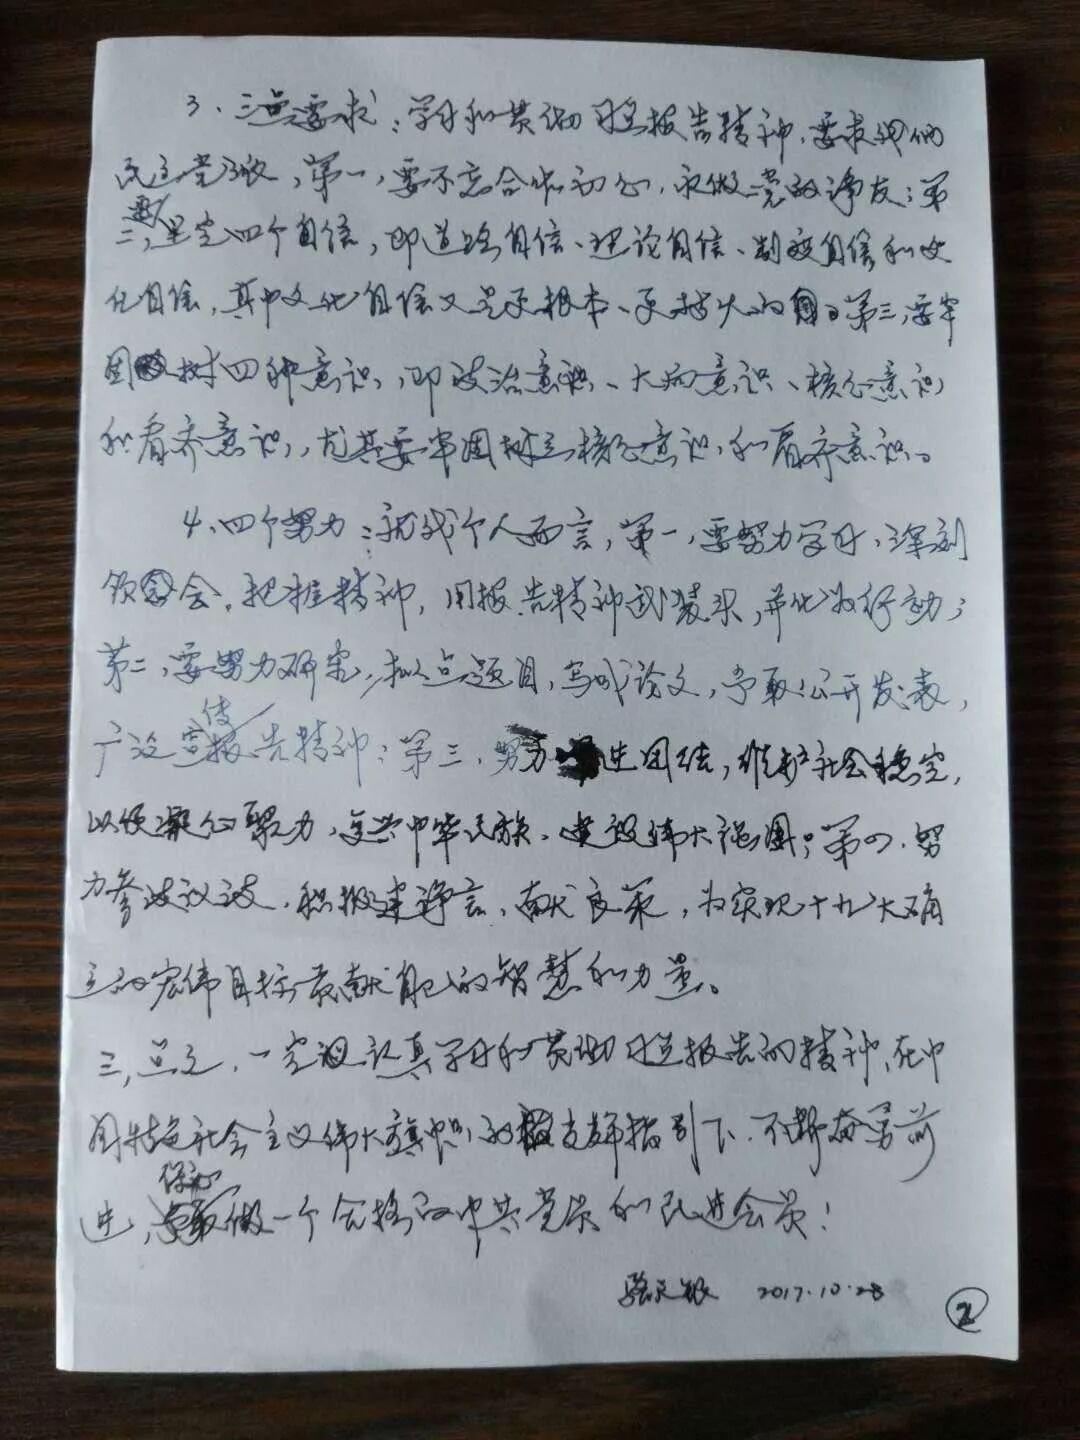 3、三点要求:学习和贯彻习总报告精神,要求我们
民主党派,第一,要不忘合作初心,永做党的诤友;第
二,要坚定四个自信,即道路自信、理论自信、制度自信和文
化自信,其中文化自信又是更根本、更持久的自信。第三,要牢
固树四种意识,即政治意识、大局意识、核心意识
和看齐意识,尤其要牢固树立核心意识和看齐意识。
4、四个努力:就我个人而言,第一,要努力学习,深刻
领会,把握精神,用报告精神武装头,并化为行动;
第二,要努力研究,拟点题目,写成论文,争取公开发表,
广泛宣传报告精神;第三,努力 进团结,维护社会稳定,
以便凝心聚力,复兴中华民族,建设伟大祖国;第四,努
力参政议政,积极建诤言,献良策,为实现十九大确
立的宏伟目标贡献自己的智慧和力量。
三,总之,一定认真学习和贯彻习总报告的精神,在中
国特色社会主义伟大旗帜的 指引下,不断奋勇前
进,保证做一个合格的中共党员和民进会员!
2017.10.28
2